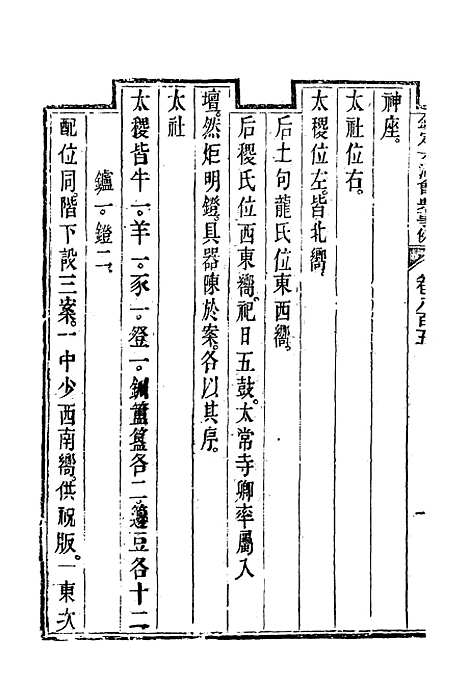 欽定大清會典事例 卷八百五 一
神座。
太社位右。
太稷位左。皆北嚮。
后土句龍氏位東西嚮。
后稷氏位西東嚮。祀日五鼓。太常寺卿率屬入
壇。然炬明鐙。具器陳於案。各以其序。
太社
太稷皆牛一。羊一。豕一。登一。鉶簠簋各二。籩豆各十二
鑪一。鐙二。
配位同。階下設三案。一中少西南嚮。供祝版。一東次